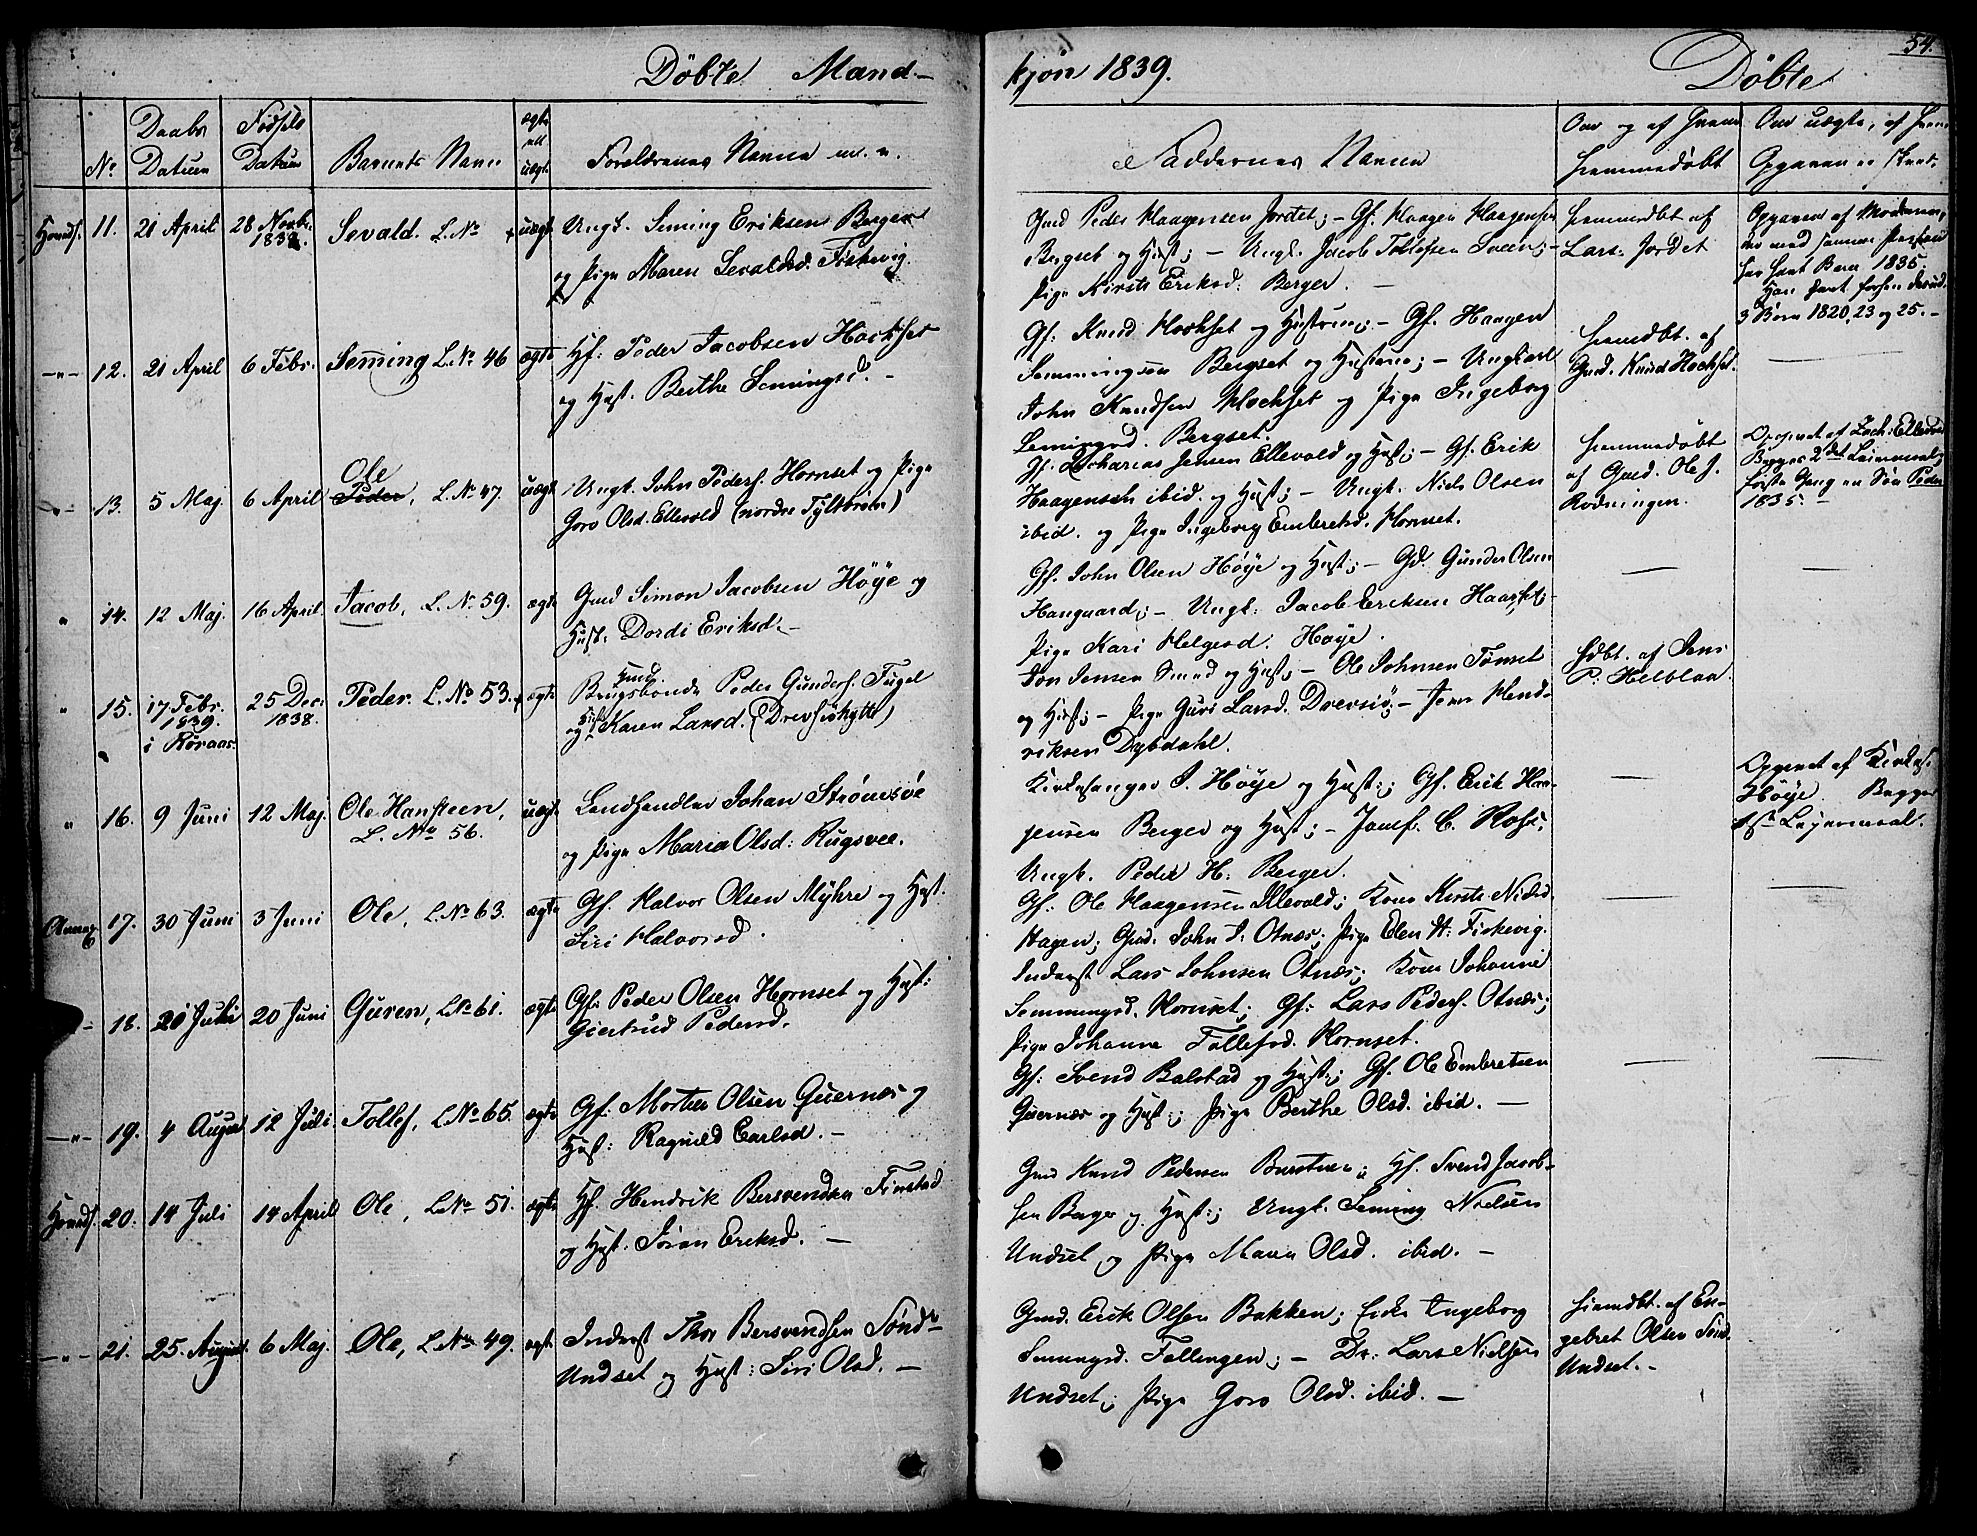 54.
Döbte Mand-
kjön 1839. Döbte
No Daabs Datum Fødsels Datum Barnets Navn ægte ell uægt. Foreldrenes Navne m. v.
Faddernes Navne Om og af hvem hjemmedøbt Om uægte, af hvem Opgaven er skeet.
Hoveds. 11. 21 April 28 Novbr. 1838. Sevald. L. No uægt Ungk. Seming Eriksen Berger
og Pige Maren Sevaldsd. Fiskevig.
Gmd Peder Haagensen Jordet; - Gf. Haagen Haagensen
Bergset og Hust; - Ungk. Jacob Tollefsen Sveen; -
Pige Kirsti Eriksd. Berger. -
hjemmedbt af
Lars Jordet
Opgaven af Moderen,
der med samme Person
har havt Barn 1835.
Han havt forhen desud.
3 Børn 1820, 23 og 25. -
-"- 12. 21 April 6 Febr. Seming L. No 46 ægte Hf: Peder Jacobsen Hockset
og Hust. Berthe Semingsd. -
Gf. Knud Hockset og Hustrue; - Gf. Haagen
Semmingsen Bergset og Hustrue; - Ungkarl
John Knudsen Hockset og Pige Ingeborg
Semingsd. Bergset.
hjemdbt. af
Gmd. Knud Hockset.
-"- 13. 5 Maj 6 April Ole Peder, L. No 47. uægt Ungk. John Peders. Hornset og Pige
Goro Olsd. Ellevold (nordre Fylstrøm)
Gf. Zacharias Jensen Ellevold og Hust; - Gf. Erik
Haagensen ibid. og Hust; - Ungk. Niels Olsen
ibid. og Pige Ingeborg Embretsd. Hornset.
hjemmedøbt
af Gmd. Ole J.
Rødningen.
Opgivet af Zach: Ellevold
Begges 2det Leiermaal;
første Gang en Søn Peder
1835. -
" 14. 12 Maj. 16 April. Jacob, L. No 59. ægte Gmd Simon Jacobsen Höye og
Hust. Dordi Eriksd. -
Gf. John Olsen Höye og Hust; - Gd. Gunder Olsen
Haugaard; - Ungk. Jacob Eriksen Haarset; -
Pige Kari Helgesd. Høye.
" 15. 17 Febr. 1839. i Røraas. 25 Dec. 1838. Peder. L. No 53. ægte Huusm. Brugsbonde Peder Gunders. Fugel
og Hust Karen Larsd. (Drevsiøhytte)
Jon Jensen Smed og Hust; - Ole Johnsen Tønset
og Hust; - Pige Guri Larsd. Drevsiø; - Jens Hend-
riksen Dybdahl.
hdbt. af Jens
P. Helblan.
" 16. 9 Juni 12 Maj. Ole Hansteen, L. No 56. uægt Landhandler Johan Strömsöe
og Pige Maria Olsd: Rugsvee.
Kirkesanger J. Høye og Hust:; Gf. Erik Haa-
gensen Berger og Hust; - Jomf. C. Hoff;
Ungk. Peder H. Berger.
Opgivet af Kirkes:
Høye. Begges
1ste Lejermaal.
Annex 17. 30 Juni 3 Juni Ole, L. No 63. ægte Gf. Halvor Olsen Myhre og Hust.
Siri Halvorsd.
Gf. Ole Haagensen Ellevold; Kone Kirsti Nielsd.
Hagen; Gmd. John I. Otnæs; Pige Elen H. Fiskevig.
-"- 18. 21 Juli 20 Juni Guren, L. No 61. ægte Gf. Peder Olsen Hornset og Hust:
Giertrud Pedersd.
Inderst Lars Johnsen Otnæs; Kone Johanne
Semmingsd. Hornset; Gf. Lars Peders. Otnæs;
Pige Johanne Tollefsd. Hornset.
-"- 19. 4 August 12 Juli. Tollef, L. No 65. ægte Gf. Morten Olsen Quernæs og
Hust: Ragnild Carlsd. -
Gf: Svend Balstad og Hust:; Gf. Ole Embretsen
Quernæs og Hust:; Pige Berthe Olsd. ibid. -
Hoveds. 20. 14 Juli 14 April Ole, L. No 51. ægte Hf. Hendrik Bersvendsen Finstad
og Hust. Jöran Eriksd. -
Gmd Knud Pedersen; Hf. Svend Jacob-
sen Berger og Hust:; Ungk. Seming Nielsen
Undset og Pige Maria Olsd. ibid. -
-"- 21. 25. August. 6 Maj. Ole, L. No 49. ægte. Inderst Thor Bersvendsen Sönd-
Undset og Hust: Siri Olsd. -
Gmd. Erik Olsen Bakken; Enke Ingeborg
Semingsd. Fallingen; - Dr: Lars Nielsen
Undset; Pige Goro Olsd. ibid. -
hjemdbt. af En-
gebret Olsen Sönd.
Undset. -